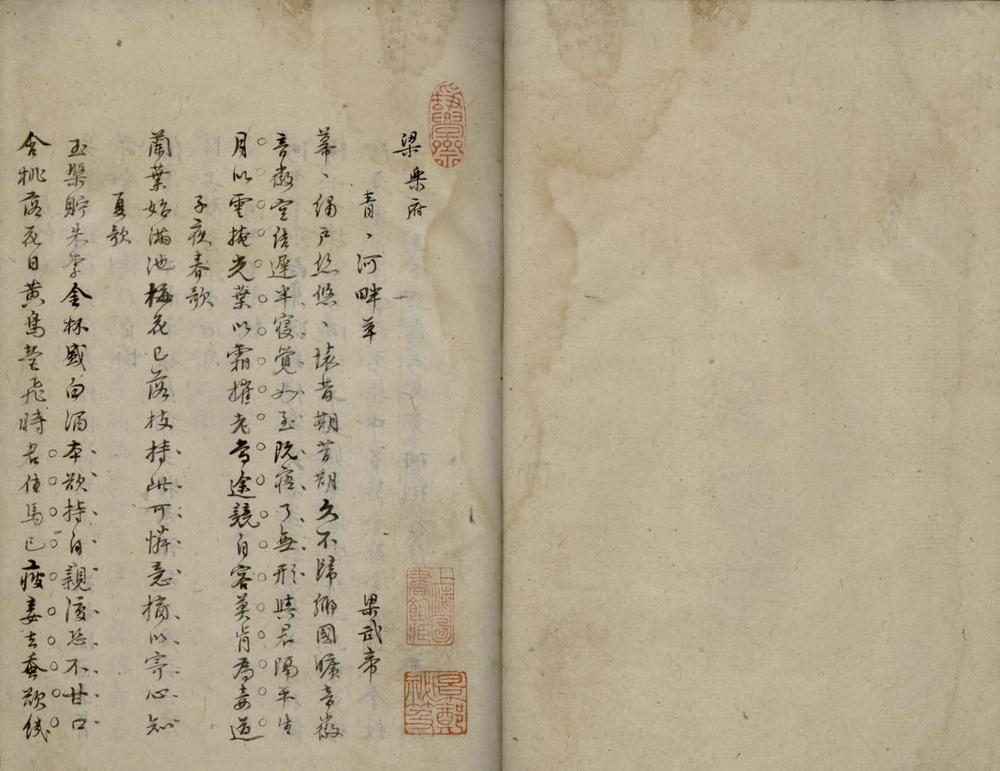 梁樂府
青、河畔草 梁武帝
幕、繡戶絲悠、懷昔期昔期久不歸鄉國曠音徽
音徽空結遲半寢覺如至既寤了無形與君隔平生
月以雲掩光葉以霜摧老當途競自容莫肯為妾道
子夜春歌
蘭葉始滿池梅花已落枝持此可憐意摘以寄心知
夏歌
玉槃貯朱李金杯盛白酒本欲持自親復恐不甘口
含桃落花日黃鳥營飛時君住馬已疲妾去蠶欲饑
上海圖書館藏